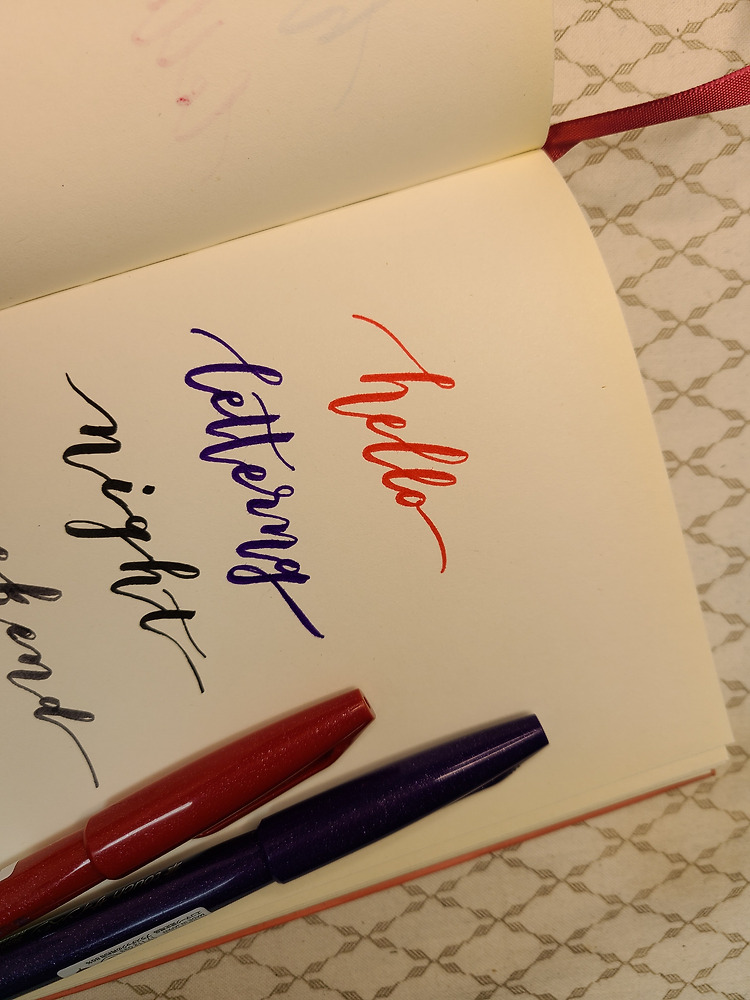 hello
lettering
night
ekend